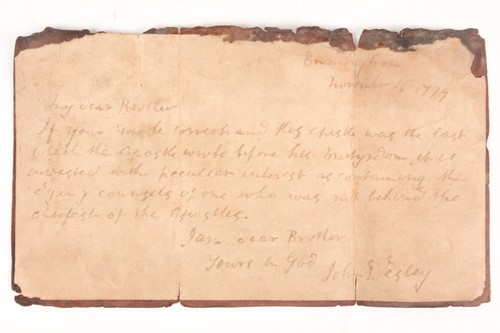 Birmingham
November 5 1779
My dear Brother
If your is correct and this Epistle was the last
which the Apostle wrote before his Martyrdom, it is
invested with peculiar interest as containing the
dying counsels of one who was not behind the
chiefest of the Apostles.
I am dear Brother
Yours in God
John Wesley